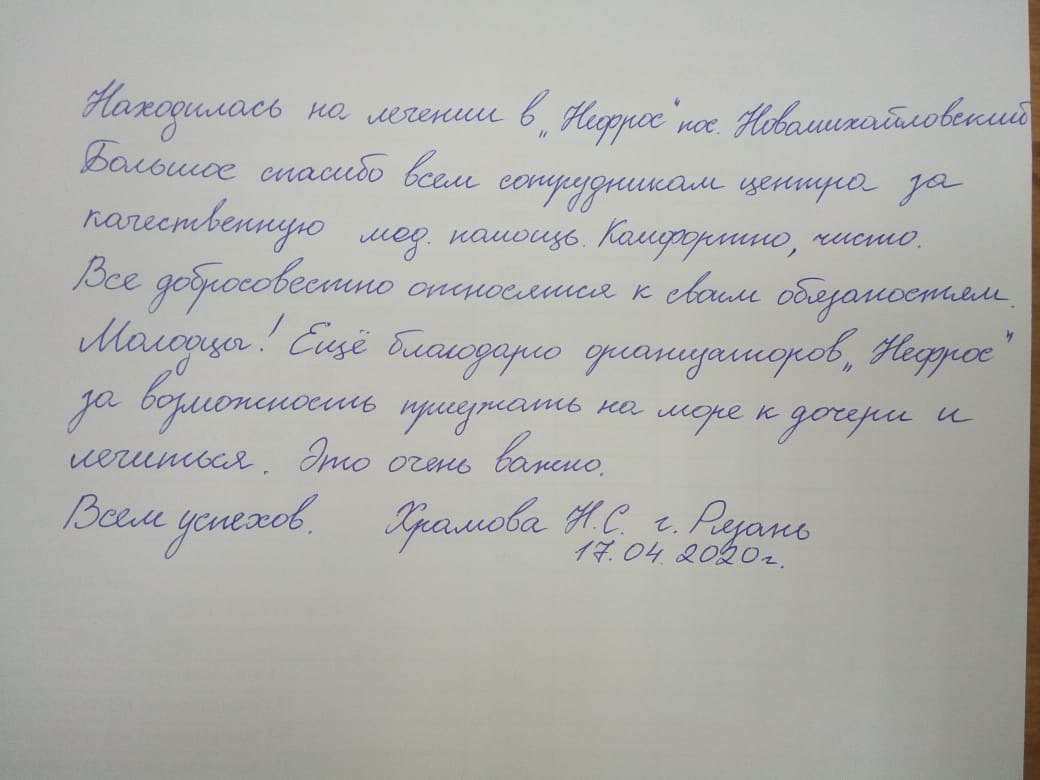 Находилась на лечении в „Нефрос" пос. Новомихайловский
Большое спасибо всем сотрудникам центра за
качественную мед. помощь. Комфортно, чисто.
Все добросовестно относятся к своим обязаностям.
Молодцы! Ещё благодарю организаторов „Нефрос"
за возможность приезжать на море к дочери и
лечиться. Это очень важно.
Всем успехов. Храмова Н.С. г. Рязань
17.04.2020г.